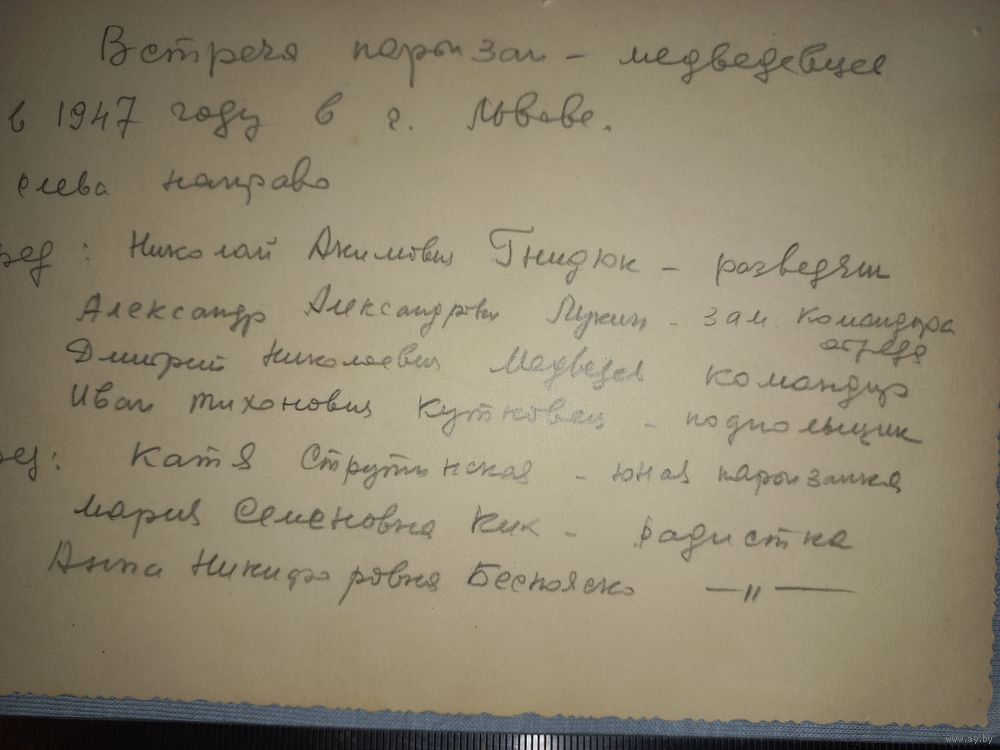 Встреча партизан - медведевцев
в 1947 году в г. Львове.
слева направо
ряд: Николай Акимович Гнидюк - разведчик
Александр Александрович Лукин - зам. командира
отряда
Дмитрий Николаевич Медведев командир
Иван Тихонович Кутковец - подпольщик
ряд: Катя Струтинская - юная партизанка
Мария Семеновна Ких - радистка
Анна Никифоровна Беспояско —"—
www.ay.by